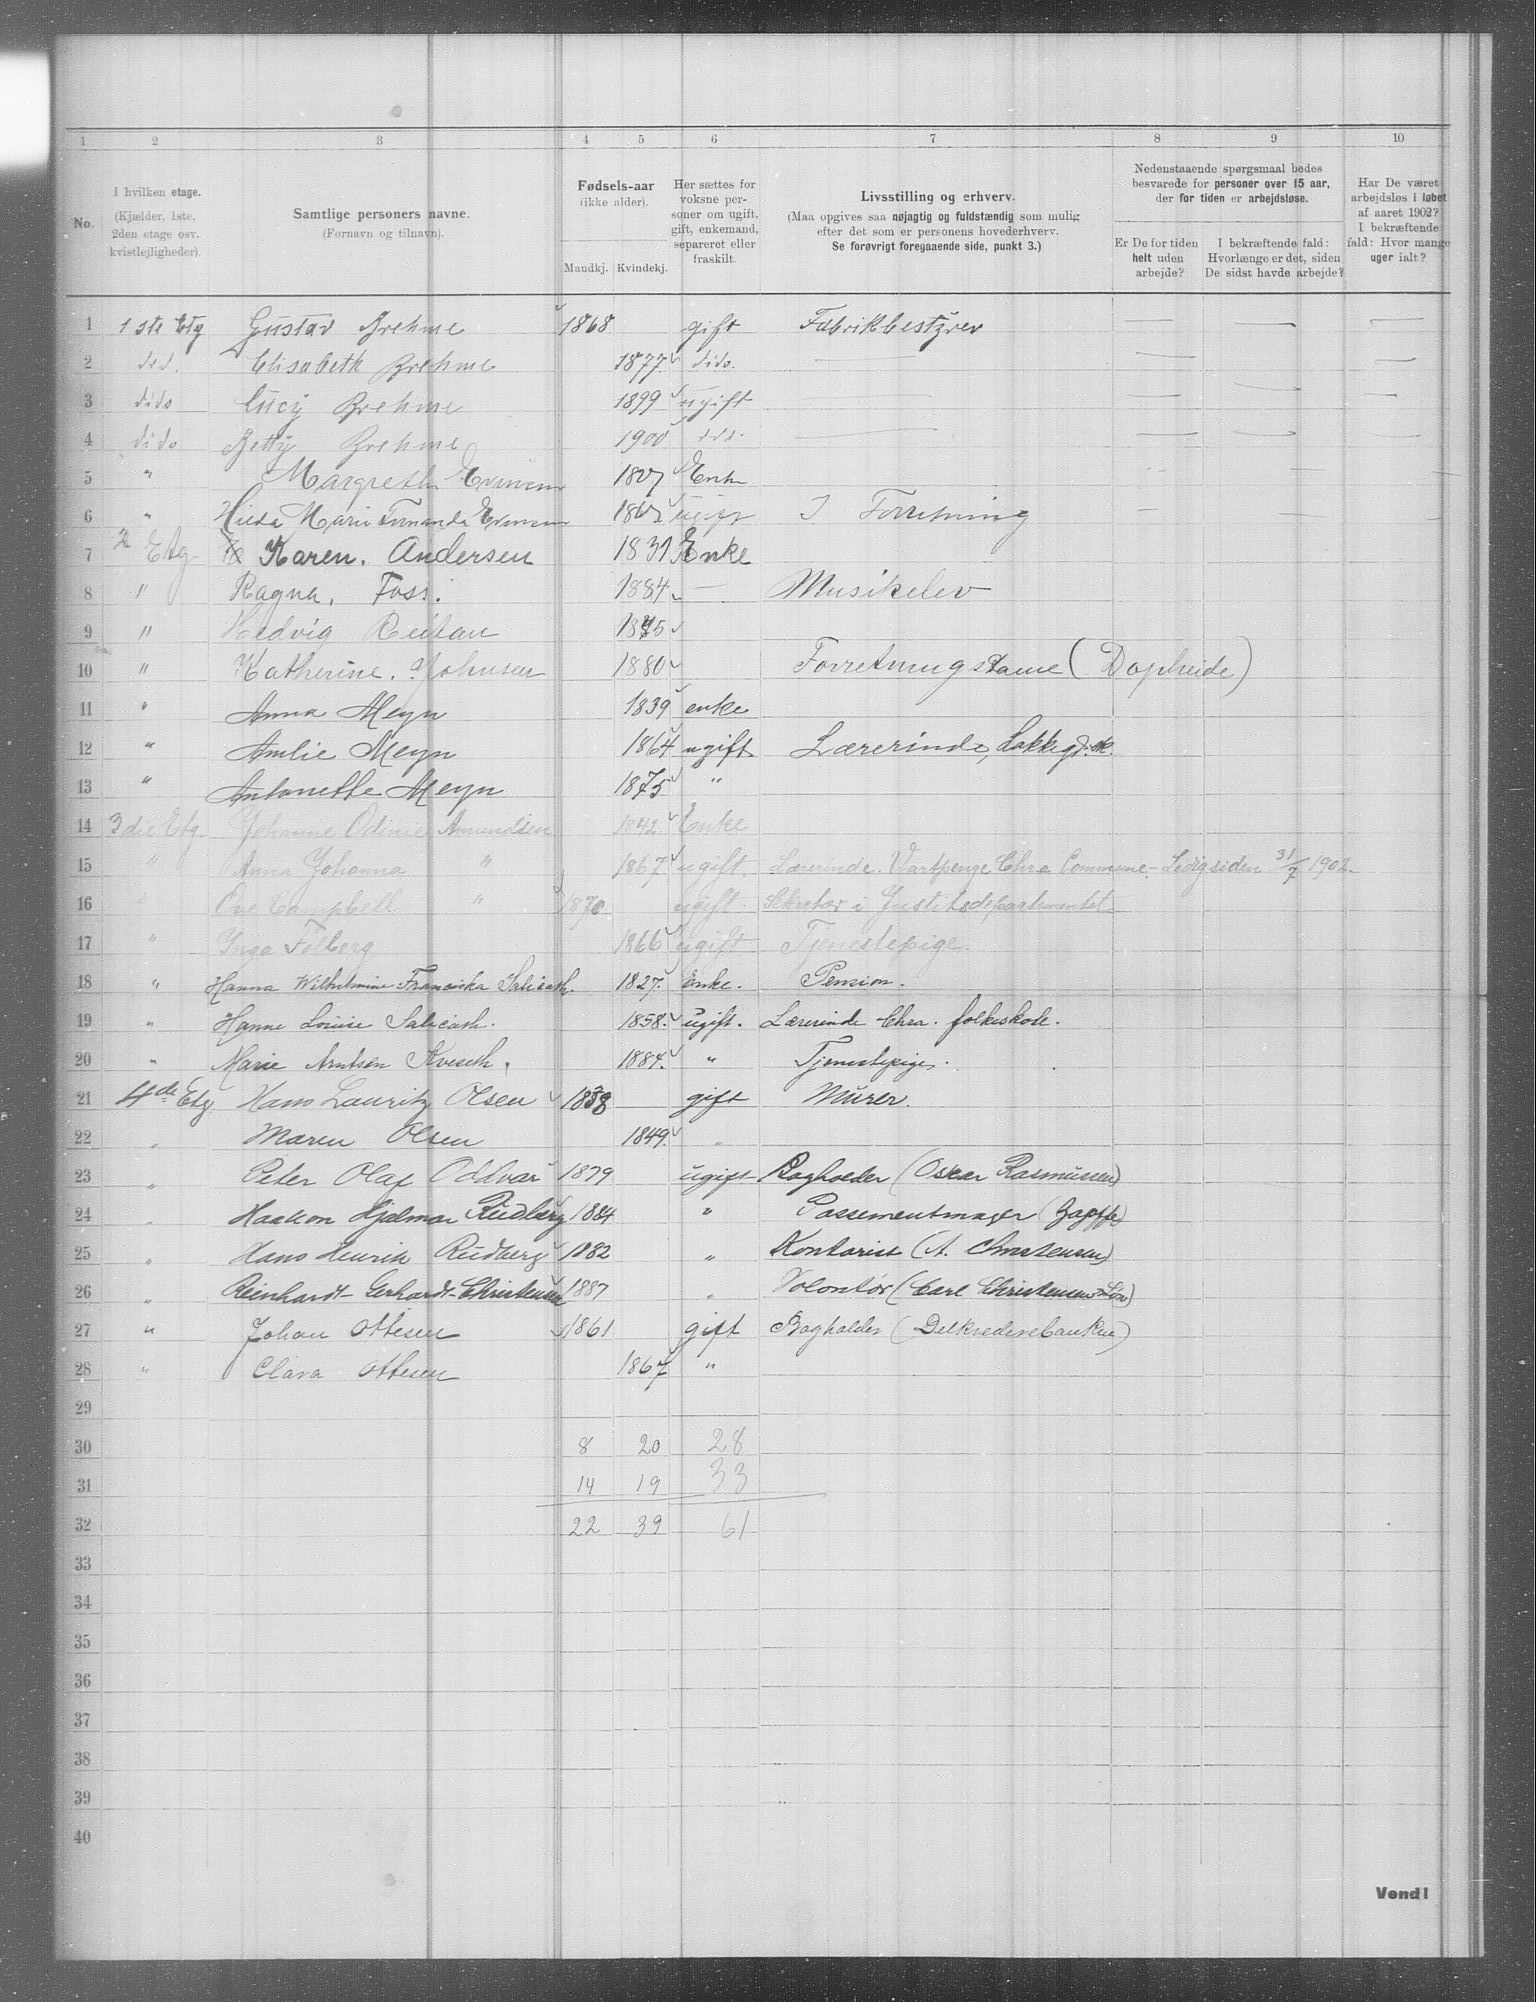 1 2 3 4 5 6 7 8 9 10
No.
I hvilken etage.
(Kjælder, 1ste.
2den etage osv.
kvistlejligheder).
Samtlige personers navne.
(Fornavn og tilnavn).
Fødsels-aar
(ikke alder).
Mandkj. Kvindekj.
Her sættes for
voksne per-
soner om ugift,
gift, enkemand,
separeret eller
fraskilt.
Livsstilling og erhverv.
(Maa opgives saa nøjagtig og fuldstændig som mulig
efter det som er personens hovederhverv.
Se forøvrigt foregaaende side, punkt 3.)
Nedenstaaende spørgsmaal bedes
besvarede for personer over 15 aar,
der for tiden er arbejdsløse.
Er De for tiden
helt uden
arbejde?
I bekræftende fald:
Hvorlænge er det, siden
De sidst havde arbejde?
Har De været
arbejdsløs i løbet
af aaret 1902?
I bekræftende
fald: Hvor mange
uger ialt?
1 1ste Etg Gustav Brehme 1868 gift Fabrikbestyrer — — —
2 do. Elisabeth Brehme 1877 dido. — — —
3 dido Lucy Brehme 1899 ugift — — —
4 dido Betty Brehme 1900 do. — — — —
5 " Margreth 1827 Enke
6 " Hilda Marie Fernanda ugift I Forretning
7 2 Etg Karen. Andersen 1831 Enke
8 " Ragna. Foss. 1884 — Musikelev
9 " Hedvig Reitan
10 " Katherine. Johnsen 1880 Forretningsdame (Dopheide)
11 " Anna Meyn 1839 enke
12 " Amlie Meyn 1864 ugift Lærerinde, Lakkegt. sk.
13 " Antonette Meyn 1875 "
14 3die Etg. Johanne Odinie Amundsen 1842 Enke
15 " Anna Johanna " 1867 ugift. Lærerinde. Vartpenge Chra Commune. - Ledig siden 31/7 1902.
16 " Ove Campbell " 1870 ugift. Sekretær i Justitsdepartementet
17 " Inga Folberg 1866 ugift Tjenestepige.
18 " Hanna Wilhelmine Franciska Salicath. 1827. Enke. Pension.
19 " Hanne Louise Salicath. 1858. ugift. Lærerinde Chra. folkeskole.
20 " Marie Arntsen Kveseth. 1884. " Tjenestepige.
21 4de Etg Hans Lauritz Olsen 1838 gift Murer.
22 " Maren Olsen 1849. "
23 " Peter Olaf Oddvar 1879 ugift Bogholder (Oscar Rasmussen)
24 " Haakon Hjalmar Rudberg 1884 " Possementmager (Zapffe)
25 " Hans Henrik Rudberg 1882 " Kontorist (A. Christensen)
26 " Reinhardt Gerhardt Christensen 1887 " Volontør (Carl Christensen & Søn)
27 " Johan Ottesen 1861 gift Bogholder (Delkrederebanken)
28 " Clara Ottesen 1867 "
29
30 8 20 28
31 14 19 33
32 22 39 61
33
34
35
36
37
38
39
40
Vend!